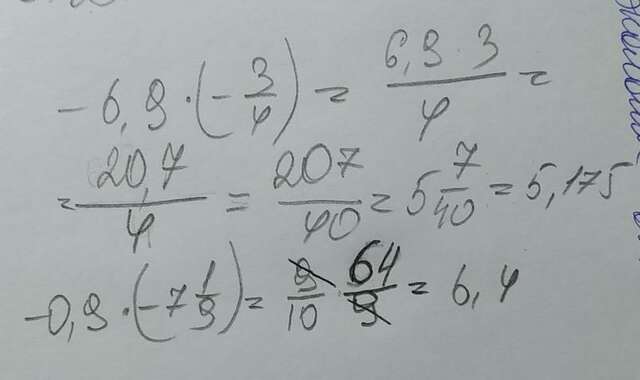 -6,9 · (- 3/4) = 6,9 · 3/4 =
= 20,7/4 = 207/40 = 5 7/40 = 5,175
-0,9 · (-7 1/9) = 9/10 · 64/9 = 6,4